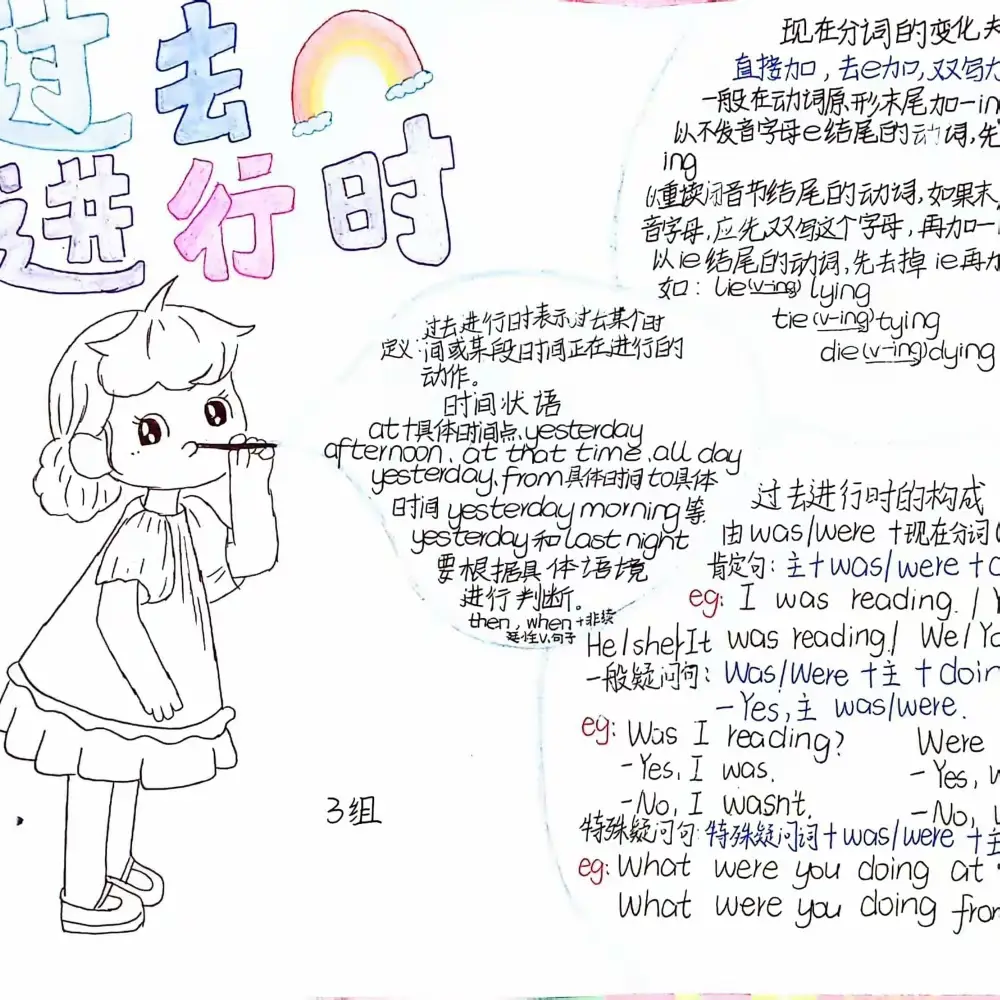 过去
进行时
现在分词的变化
直接加，去e加，双写加
一般在动词原形末尾加-in
以不发音字母e结尾的动词，先
ing
以重读闭音节结尾的动词，如果末
音字母，应先双写这个字母，再加一
以ie结尾的动词，先去掉ie再加
如：lie(v-ing)lying
tie(v-ing)tying
die(v-ing)dying
过去进行时表示过去某个时
定义：间或某段时间正在进行的
动作。
时间状语
at+具体时间点、yesterday
afternoon、at that time、all day
yesterday、from具体时间to具体
时间 yesterday morning等.
yesterday和last night
要根据具体语境
进行判断。
then, when+非续
延性v.句子
过去进行时的构成
由was/were+现在分词(
肯定句：主+was/were+d
eg: I was reading. / Y
He/she/It was reading./ We/Yo
一般疑问句：Was/Were+主+doin
-Yes,主 was/were.
eg: Was I reading? Were
-Yes, I was. -Yes, w
-No, I wasn't. -No,
特殊疑问句:特殊疑问词+was/were+主
eg: What were you doing at
What were you doing from
3组